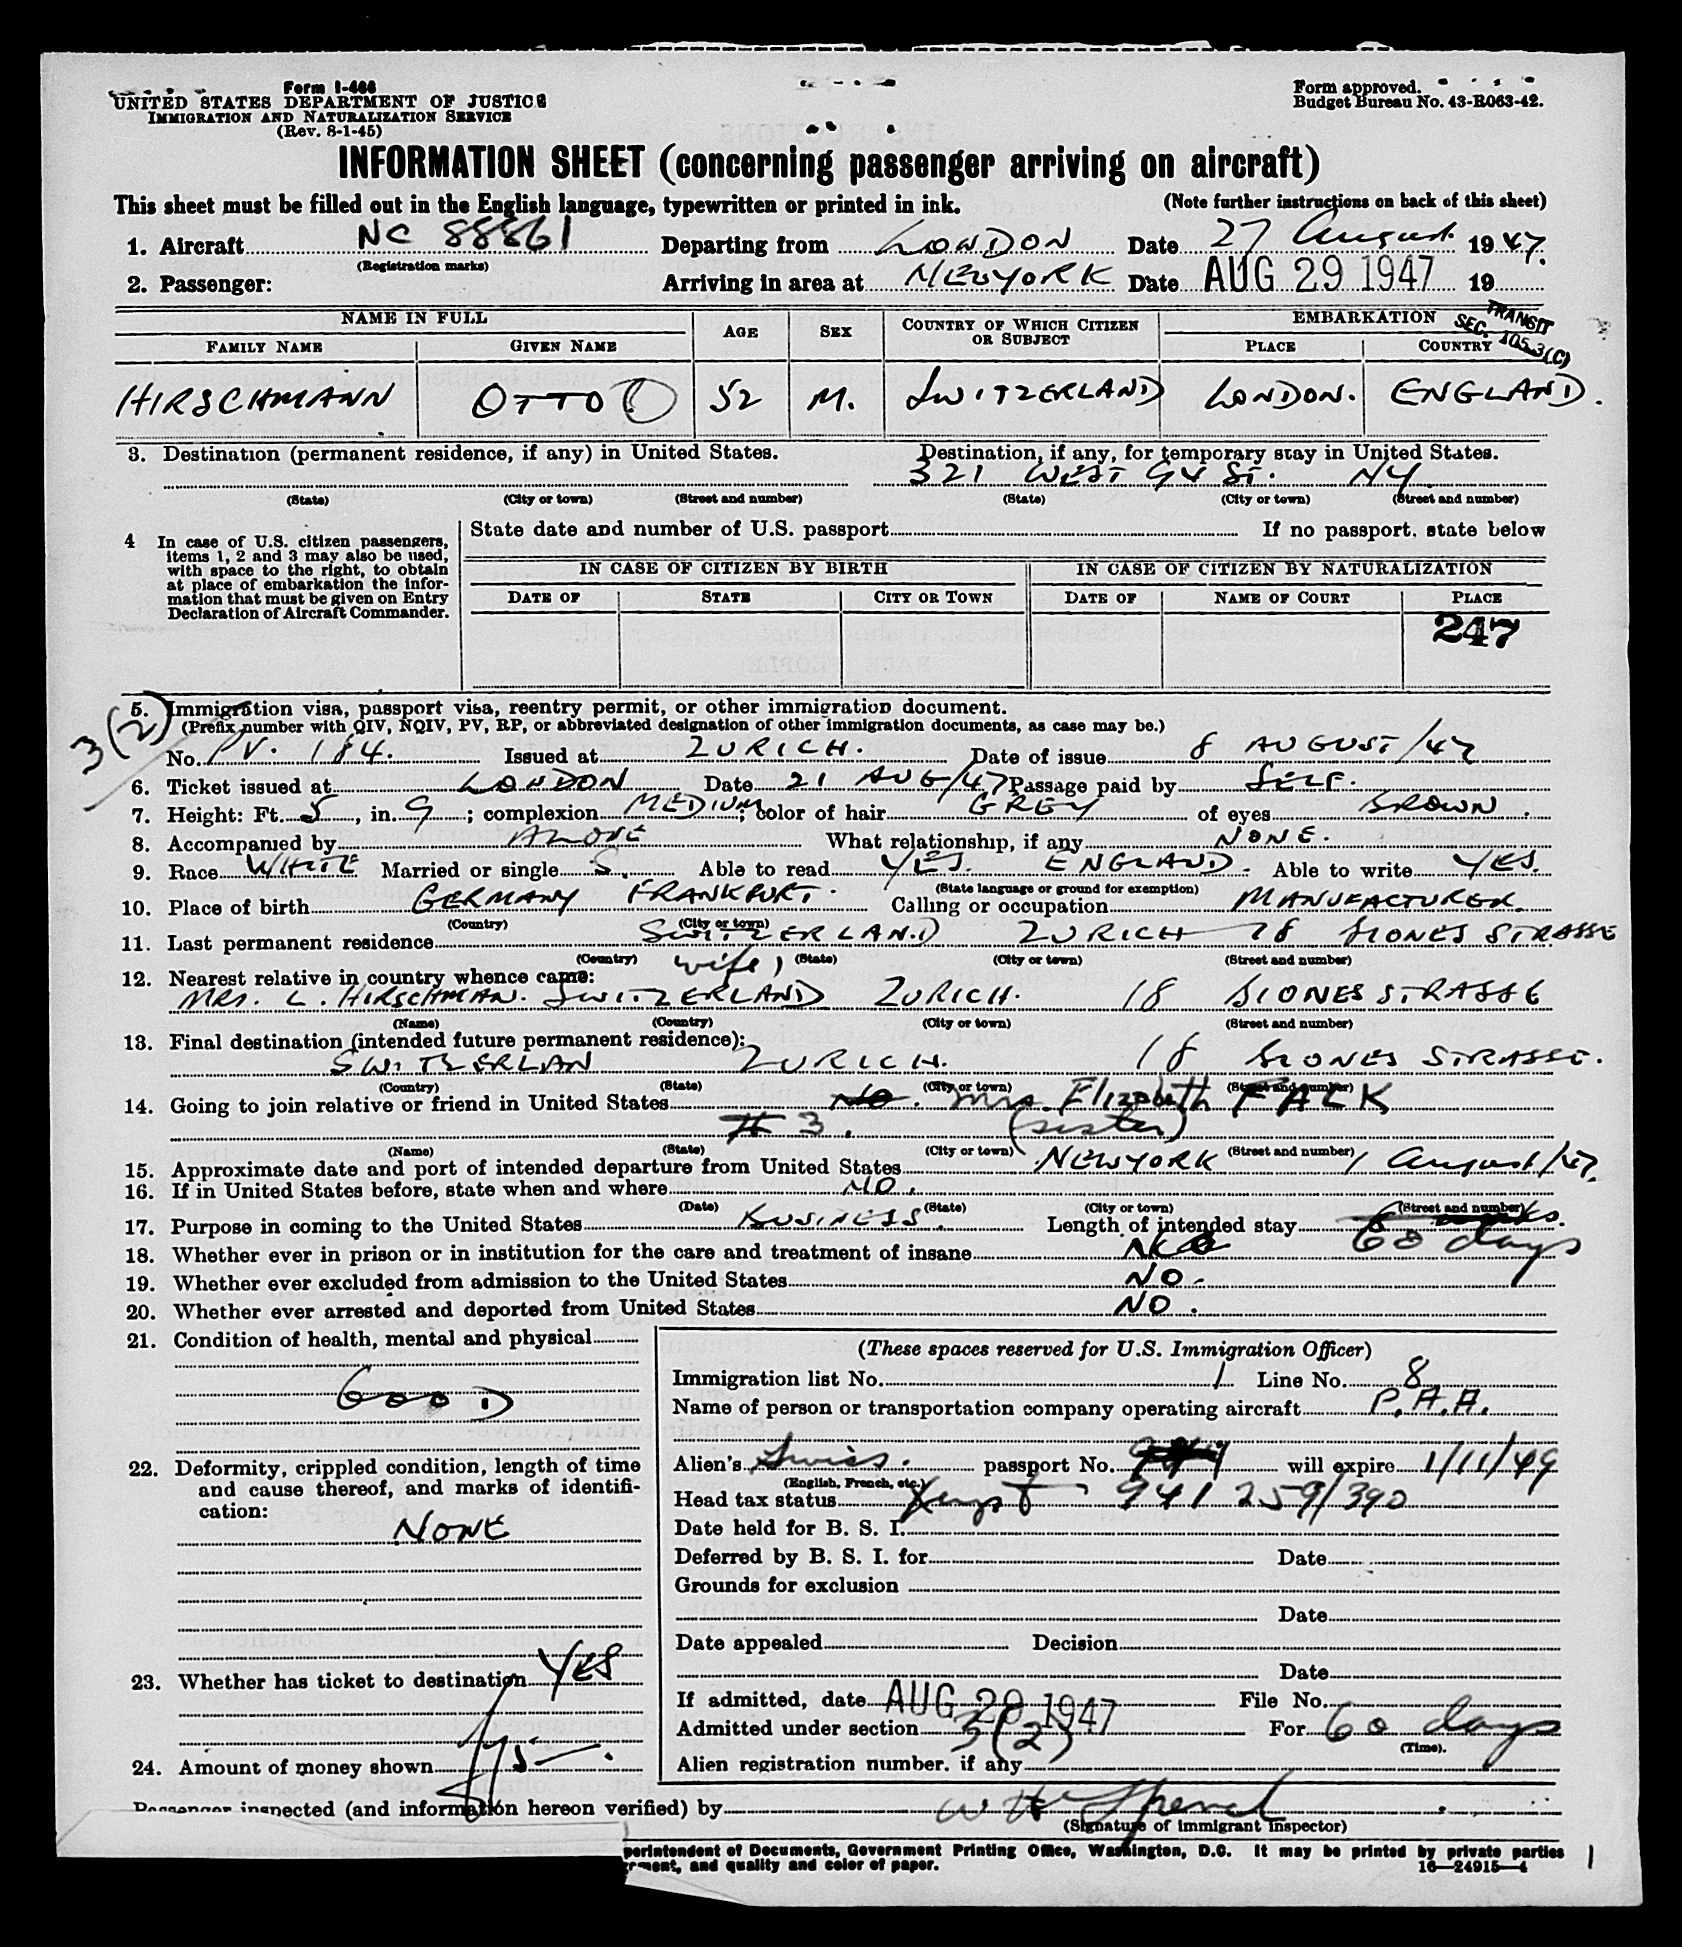 Form I-466
UNITED STATES DEPARTMENT OF JUSTICE
IMMIGRATION AND NATURALIZATION SERVICE
(Rev. 8-1-45)
Form approved.
Budget Bureau No. 43-R063-42.
INFORMATION SHEET (concerning passenger arriving on aircraft)
This sheet must be filled out in the English language, typewritten or printed in ink. (Note further instructions on back of this sheet)
1. Aircraft NC 88861 Departing from LONDON Date 27 August 1947.
(Registration marks)
2. Passenger: Arriving in area at NEWYORK Date AUG 29 1947 19
NAME IN FULL AGE SEX COUNTRY OF WHICH CITIZEN OR SUBJECT EMBARKATION
TRANSIT SEC. 105.3(C)
FAMILY NAME GIVEN NAME PLACE COUNTRY
HIRSCHMANN OTTO 52 M. SWITZERLAND LONDON. ENGLAND.
3. Destination (permanent residence, if any) in United States. Destination, if any, for temporary stay in United States.
321 WEST 94 ST. NY.
(State) (City or town) (Street and number) (State) (City or town) (Street and number)
4 In case of U.S. citizen passengers, items 1, 2 and 3 may also be used, with space to the right, to obtain at place of embarkation the information that must be given on Entry Declaration of Aircraft Commander.
State date and number of U.S. passport If no passport, state below
IN CASE OF CITIZEN BY BIRTH IN CASE OF CITIZEN BY NATURALIZATION
DATE OF STATE CITY OR TOWN DATE OF NAME OF COURT PLACE
247
3(2)
5. Immigration visa, passport visa, reentry permit, or other immigration document.
(Prefix number with QIV, NQIV, PV, RP, or abbreviated designation of other immigration documents, as case may be.)
No. PV. 184. Issued at ZURICH. Date of issue 8 AUGUST/47
6. Ticket issued at LONDON Date 21 AUG/47 Passage paid by SELF.
7. Height: Ft. 5, in. 9; complexion MEDIUM; color of hair GREY of eyes BROWN.
8. Accompanied by ALONE What relationship, if any NONE.
9. Race WHITE Married or single S. Able to read YES. ENGLAND. Able to write YES.
(State language or ground for exemption)
10. Place of birth GERMANY FRANKFURT. Calling or occupation MANUFACTURER.
(Country) (City or town)
11. Last permanent residence SWITZERLAND ZURICH 18 SIONES STRASSE
(Country) (State) (City or town) (Street and number)
12. Nearest relative in country whence came: wife,
MRS. L. HIRSCHMAN. SWITZERLAND ZURICH. 18 SIONES STRASSE
(Name) (Country) (City or town) (Street and number)
13. Final destination (intended future permanent residence):
SWITZERLAN ZURICH. 18 SIONES STRASSE.
(Country) (State) (City or town) (Street and number)
14. Going to join relative or friend in United States Mrs. Elizabeth FALK
# 3. (sister)
(Name) (State) (City or town) (Street and number)
15. Approximate date and port of intended departure from United States NEWYORK 1 August/47.
16. If in United States before, state when and where NO.
(Date) (State) (City or town) (Street and number)
17. Purpose in coming to the United States BUSINESS. Length of intended stay 60 days
18. Whether ever in prison or in institution for the care and treatment of insane NO
19. Whether ever excluded from admission to the United States NO.
20. Whether ever arrested and deported from United States NO.
21. Condition of health, mental and physical
GOOD
22. Deformity, crippled condition, length of time and cause thereof, and marks of identification:
NONE
23. Whether has ticket to destination YES
24. Amount of money shown
(These spaces reserved for U.S. Immigration Officer)
Immigration list No. 1 Line No. 8
Name of person or transportation company operating aircraft P.A.A.
Alien's Swiss. passport No. will expire 1/11/49
(English, French, etc.)
Head tax status Xempt 941 259/390
Date held for B. S. I.
Deferred by B. S. I. for Date
Grounds for exclusion
Date
Date appealed Decision
Date
If admitted, date AUG 29 1947 File No.
Admitted under section 3(2) For 60 days
(Time).
Alien registration number, if any
Passenger inspected (and information hereon verified) by
(Signature of immigrant inspector)
perintendent of Documents, Government Printing Office, Washington, D.C. It may be printed by private parties
ment, and quality and color of paper. 16—24915-4